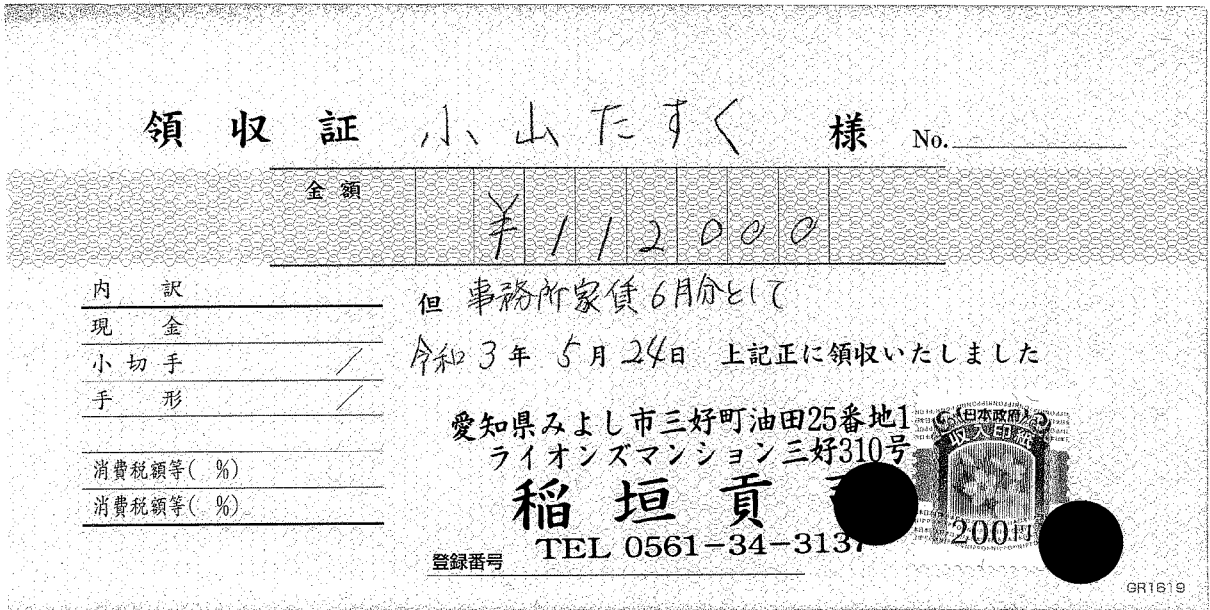 領収証 小山たすく 様 No.
金額 ¥112000
内訳
現金
小切手
手形
消費税額等( %)
消費税額等( %)
但 事務所家賃6月分として
令和3年5月24日 上記正に領収いたしました
愛知県みよし市三好町油田25番地1
ライオンズマンション三好310号
稲垣貢
TEL 0561-34-3137
登録番号
日本政府
収入印紙
200円
GR1619